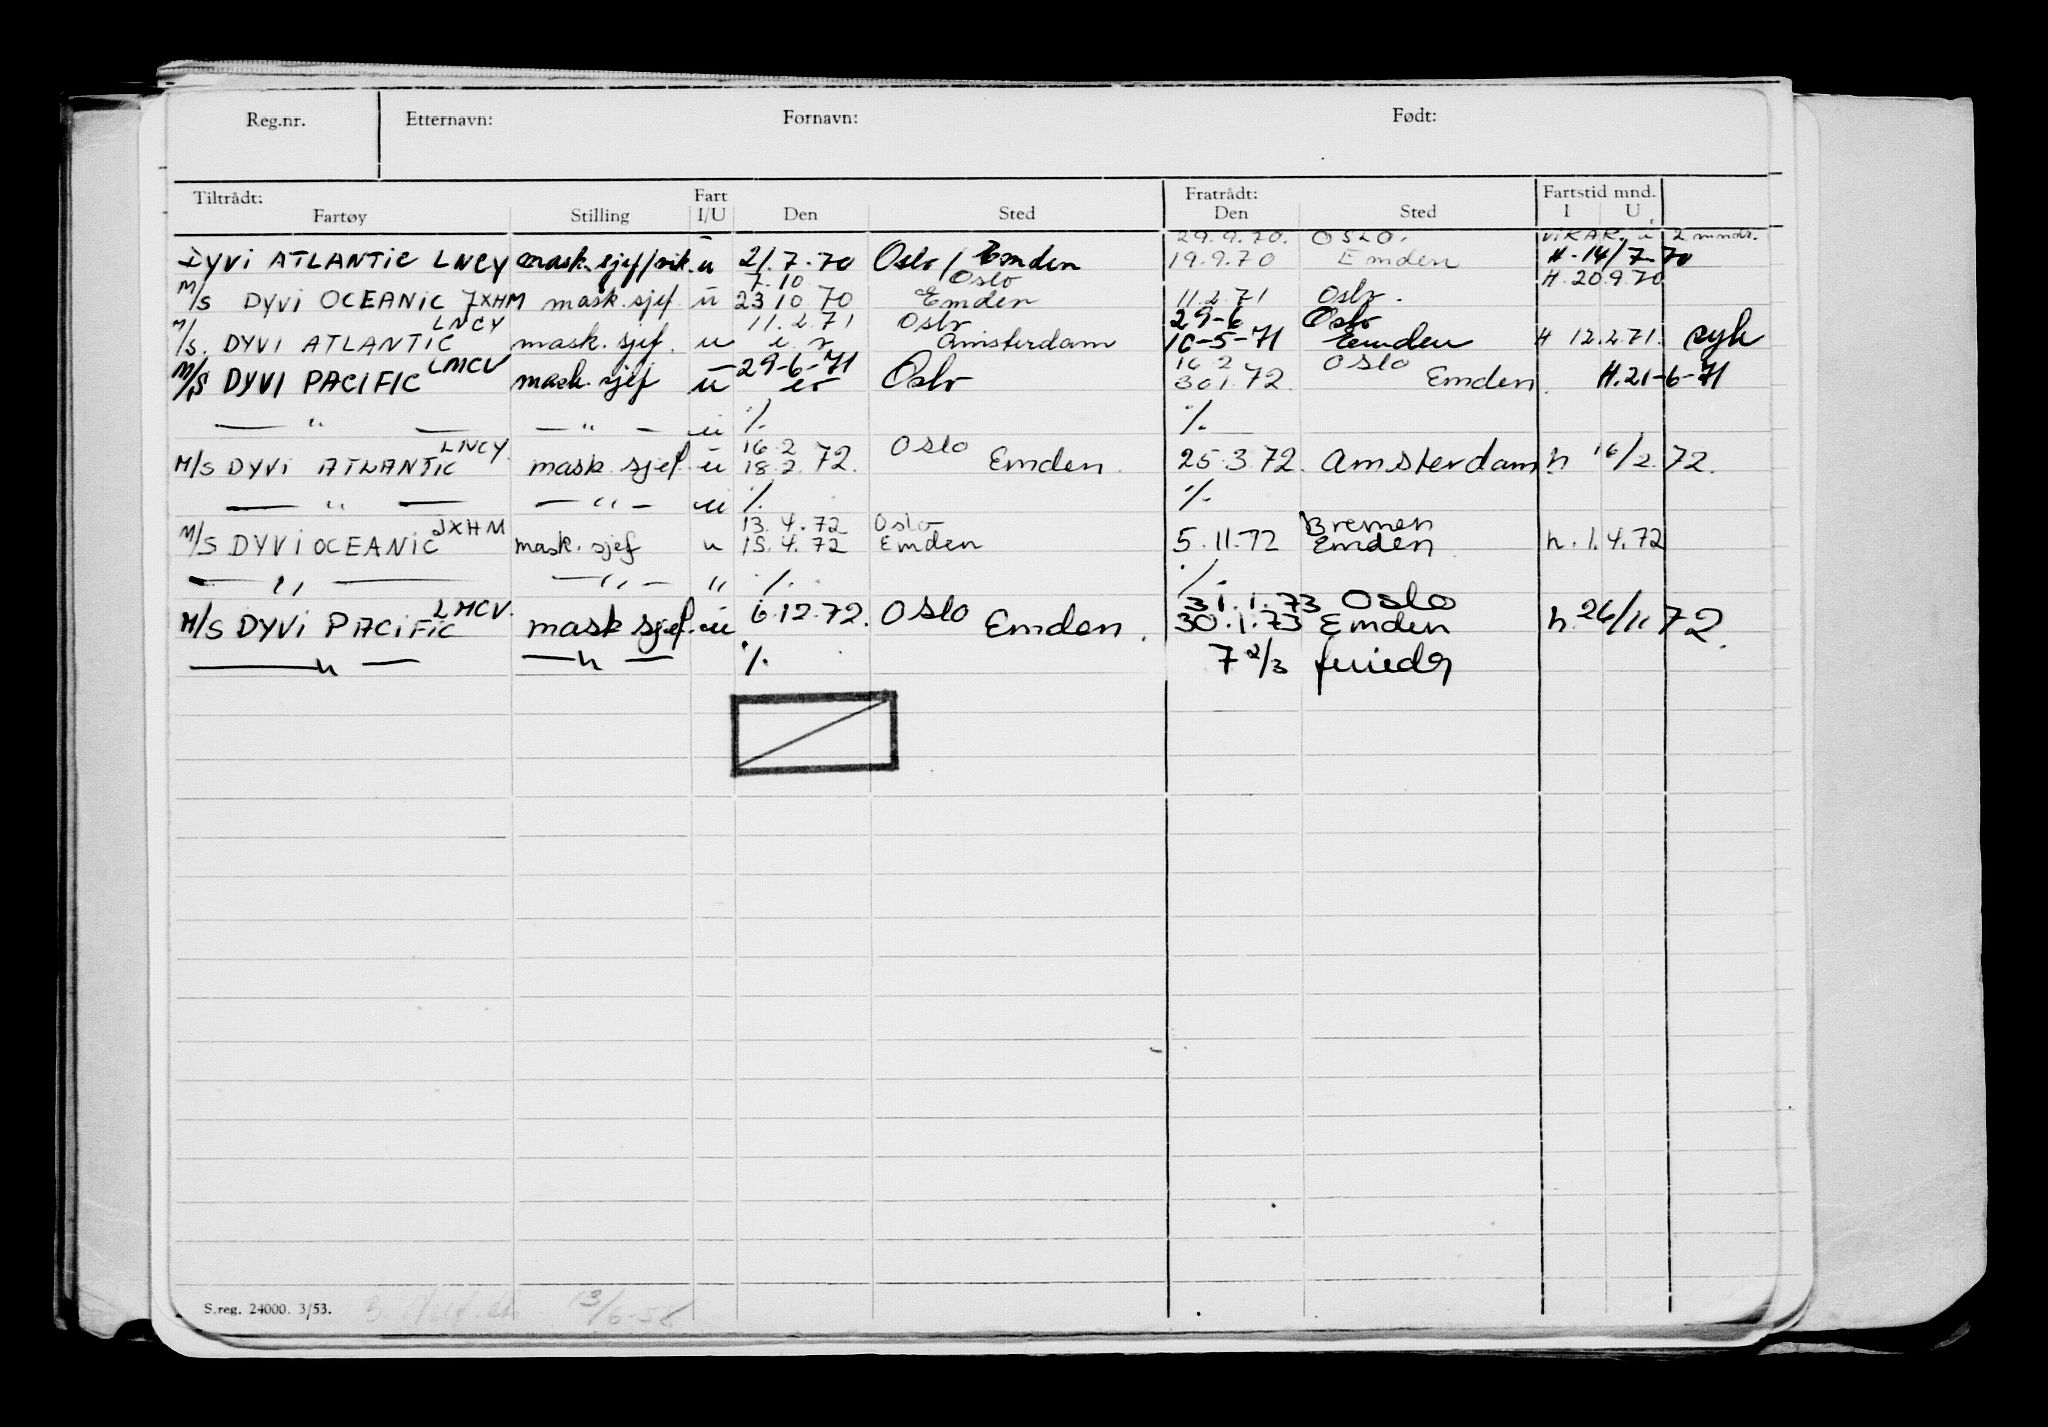 Reg.nr. Etternavn: Fornavn: Født:
Tiltrådt: Fart Fratrådt: Fartstid mnd.
Fartøy Stilling I/U Den Sted Den Sted I U
29.9.70. OSLO. VIKAR. i 2 mndr.
DYVI ATLANTIC LNCY mask.sjef/vik. u 21.7.70 Oslo / Emden 19.9.70 Emden H-14/7-70
7.10 Oslo H 20.9.70
M/S DYVI OCEANIC JXHM mask.sjef u 23.10.70 Emden 11.2.71 Oslo.
LNCY 11.2.71 Oslo 29-6 Oslo
M/S. DYVI ATLANTIC mask.sjef. u Amsterdam 10-5-71 Emden H 12.2.71. syk
LMCV 29-6-71 16.2 OSLO
M/S DYVI PACIFIC mask.sjef u Oslo 30.1.72. Emden. H.21-6-71
— " — — " — u ./. ./.
LNCY. 16.2 OSLO
M/S DYVI ATLANTIC mask.sjef. u 18.2.72. Emden. 25.3.72. Amsterdam h 16/2.72.
— " — — " — u ./. ./.
JXHM 13.4.72 Oslo Bremen
M/S DYVI OCEANIC mask.sjef u 15.4.72 Emden 5.11.72 Emden. h.1.4.72
— " — — " — " ./. ./.
LMCV. 31.1.73 Oslo
M/S DYVI PACIFIC mask sjef. u 6.12.72. OSLO Emden. 30.1.73 Emden h.26/11 72.
— " — — " — ./. 7 2/3 feriedg
S.reg. 24000. 3/53. 13/6-58